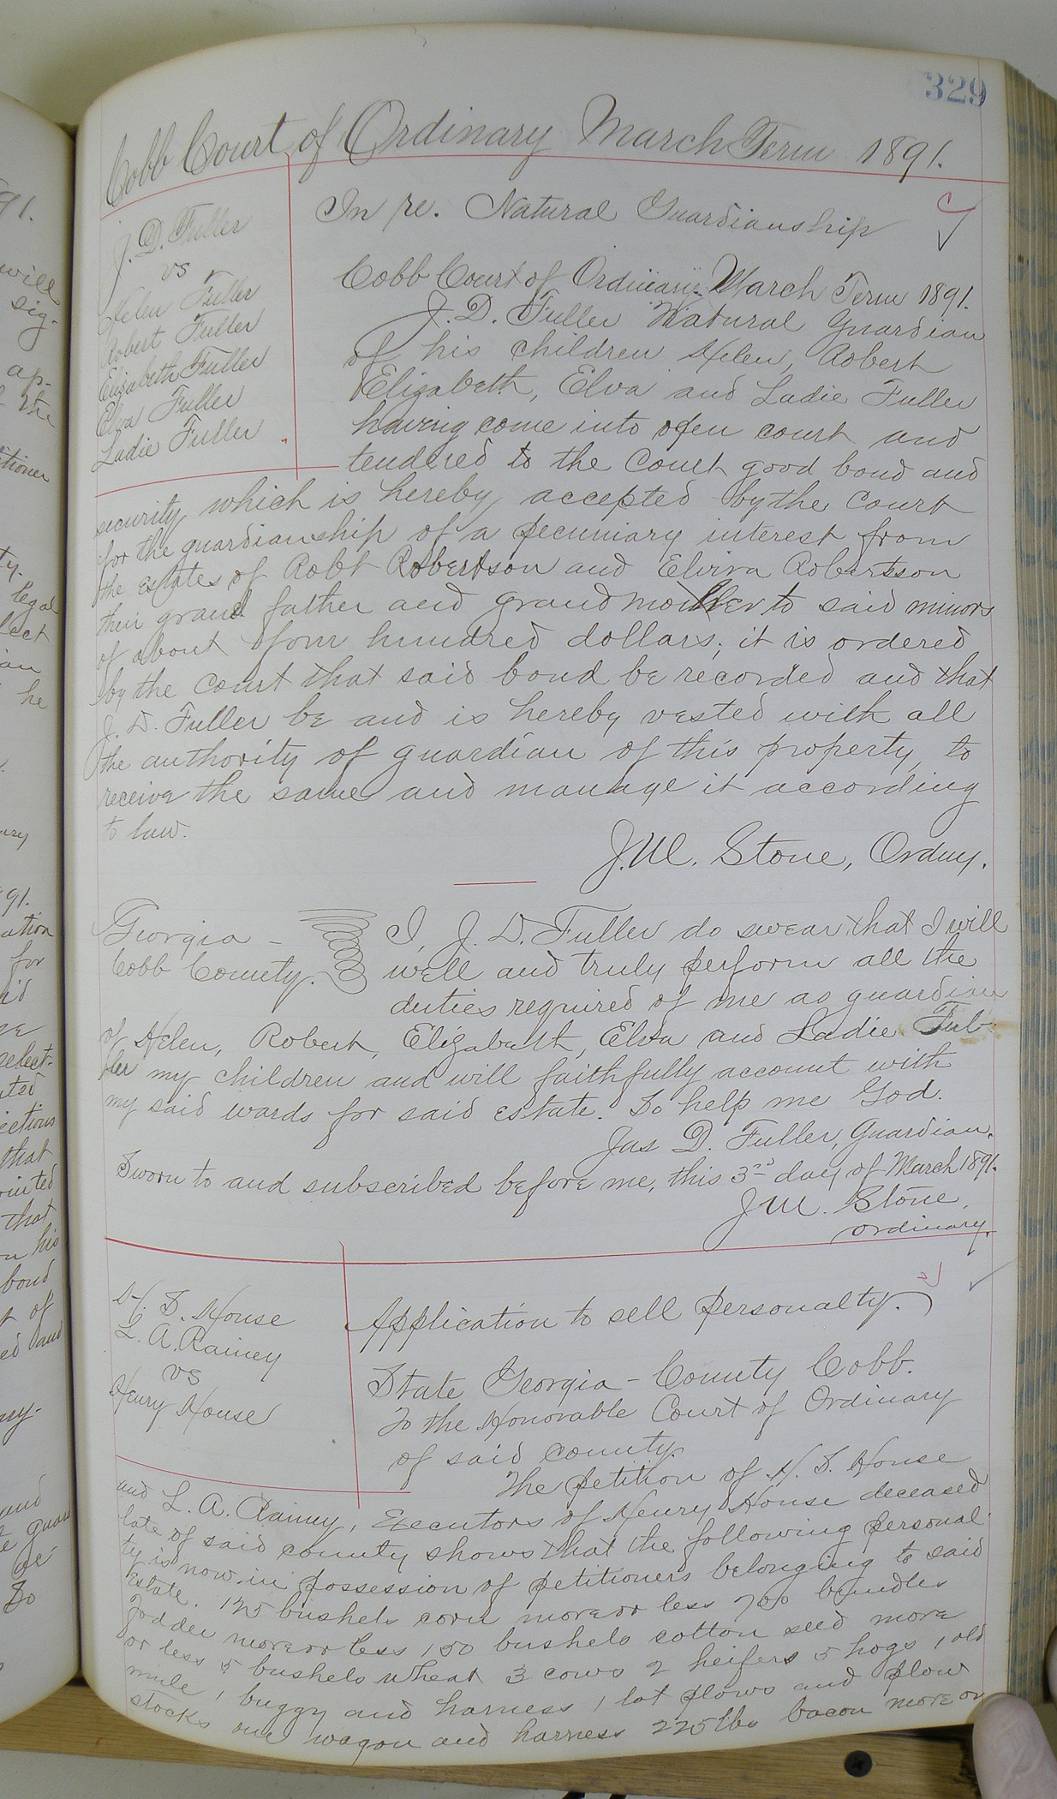 329
Cobb Court of Ordinary March Term 1891.
J. D. Fuller
vs
Helen Fuller
Robert Fuller
Elizabeth Fuller
Elva Fuller
Ladie Fuller
In re. Natural Guardianship
Cobb Court of Ordinary March Term 1891.
J. D. Fuller Natural Guardian
of his children Helen, Robert
Elizabeth, Elva and Ladie Fuller
having come into open court and
tendered to the court good bond and
security which is hereby accepted by the court
for the guardianship of a pecuniary interest from
the Estates of Robt Robertson and Elvira Robertsson
their grand father and grandmother to said minors
of about four hundred dollars; it is ordered
by the court that said bond be recorded and that
J. D. Fuller be and is hereby vested with all
the authority of guardian of this property, to
receive the same and manage it according
to law.
J. M. Stone, Ordny.
Georgia -
Cobb County.
I, J. D. Fuller do swear that I will
well and truly perform all the
duties required of me as guardian
of Helen, Robert, Elizabeth, Elva and Ladie Ful-
ler my children and will faithfully account with
my said wards for said estate. So help me God.
Jas D. Fuller, Guardian.
Sworn to and subscribed before me, this 3rd day of March 1891.
J. M. Stone,
ordinary.
H. S. House
L. A. Rainey
vs
Henry House
Application to sell personalty.
State Georgia - County Cobb.
To the Honorable Court of Ordinary
of said county.
The petition of H. S. House
and L. A. Rainey, Executors of Henry House deceased
late of said county shows that the following personal
ty is now in possession of petitioners belonging to said
Estate. 125 bushels corn more or less 700 bundles
Fodder more or less 150 bushels cotton seed more
or less 5 bushels wheat 3 cows 2 heifers 5 hogs, 1 old
mule, 1 buggy and harness, 1 lot plows and plow
stocks one wagon and harness 225 lbs bacon more or